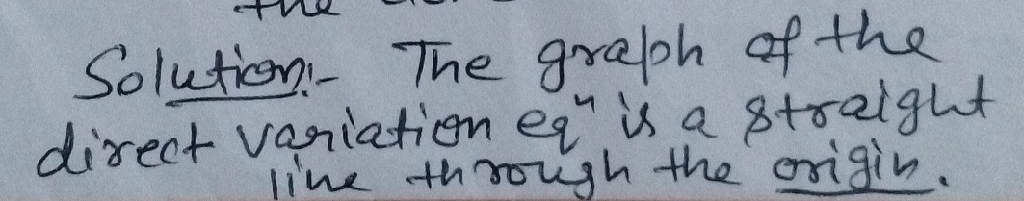 the
Solution:- The graph of the
direct variation eqⁿ is a straight
line through the origin.